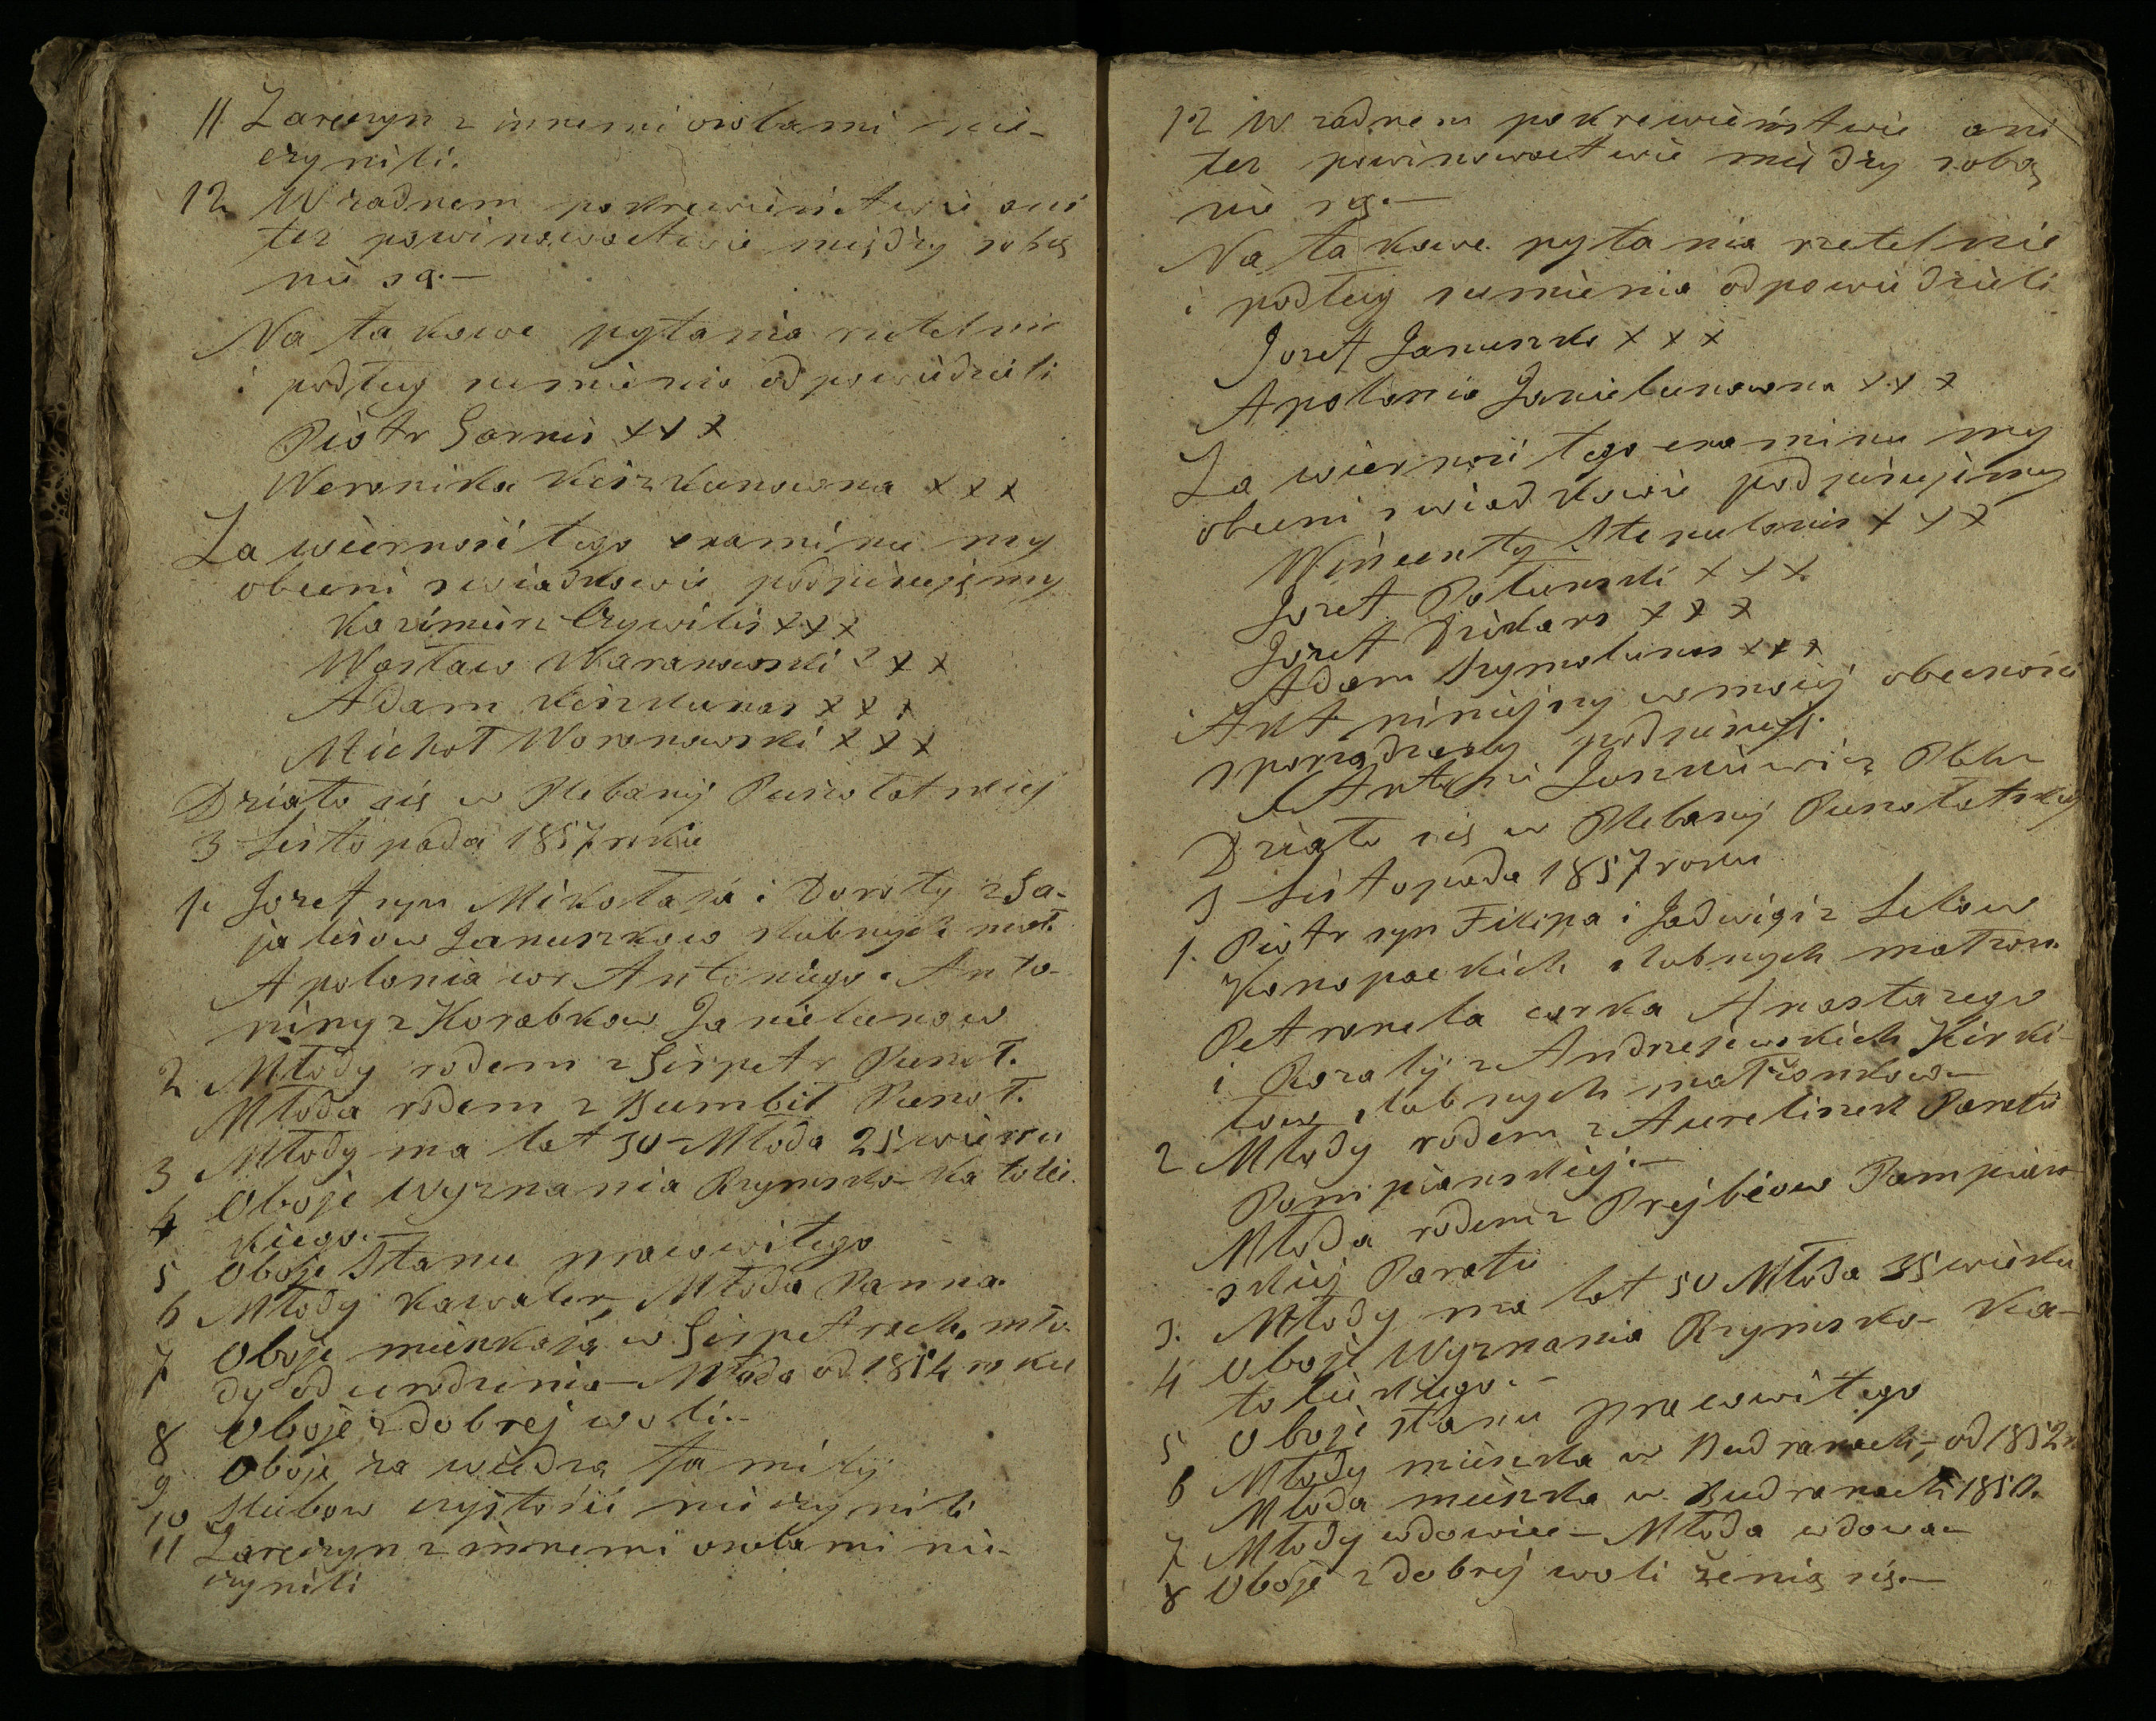 11 Zaręczyn z innemi osobami nie-
czynili.
12 W zadnem pokrewieństwie ani
tez powinowactwie między sobą
nie są.—
Na takowe pytania rzetelnie
i podług sumienia odpowiedzieli
Piotr Sarnis x x x
Weronika Keizkunowna x x x
Za wiernosć tego examinu my
obecni swiadkowie podpisujemy
Kazimierz Czywilis x x x
Wacław Waranowski x x x
Adam Keizkunas x x x
Michał Woronowski x x x
Działo się w Plebanij Puszołatskiej
3 Listopada 1857 roku
1. Jozef syn Mikołaja i Doroty z Sa-
jatisow Januszkow slubnych małz.
Apolonia cor Antoniego i Anto-
niny z Korabkow Janielunow
2 Młody rodem z Sirpetr Puszoł.
Młoda rodem z Bumbił Puszoł.
3 Młody ma lat 30 – Młoda 25 wieku
4 Oboje Wyznania Rzymsko-Katolic-
kiego.—
5 Oboje Stanu pracowitego
6 Młody Kawaler, Młoda Panna.
7 Oboje mieszkają w Sirpetrach, mło-
dy od urodzenia – Młoda od 1854 roku
8 Oboje z dobrej woli.–
9 Oboje za wiedzą familij
10 Slubow czystości nie czynili
11 Zaręczyn z innemi osobami nie-
czynili
12 W zadnem pokrewieństwie ani
tez powinowactwie między sobą
nie są.—
Na takowe pytania rzetelnie
i podług sumienia odpowiedzieli
Jozef Januszko x x x
Apolonia Janielunowna x x x
Za wiernosć tego examinu my
obecni swiadkowie podpisujemy
Wincenty x x x
Jozef Potunski x x x
Jozef x x x
Adam Szymolunas x x x
Akt niniejszy w mojej obecności
sporządzony podpisuję.
X Antoni Juszkiewicz
Działo się w Plebanij Puszołatskiej
3 Listopada 1857 roku
1. Piotr syn Filipa i Jadwigi z Lelow
Konopackich slubnych małzon.
Petronela corka Anastazego
i Rozalij z Andrzejewskich Kirki-
low slubnych małżonkow—
2 Młody rodem z Aureliszek Parafii
Pompianskiej.—
Młoda rodem z Prejbisow Pompian-
skiej Parafii
3. Młody ma lat 50 Młoda 35 wieku
4 Oboje Wyznania Rzymsko-Ka-
tolickiego.—
5 Oboje stanu pracowitego
6 Młody mieszka w Budranach, – od 1852 r.
Młoda mieszka w Budranach 1850.
7 Młody wdowiec – Młoda wdowa—
8 Oboje z dobrej woli żenią się.—